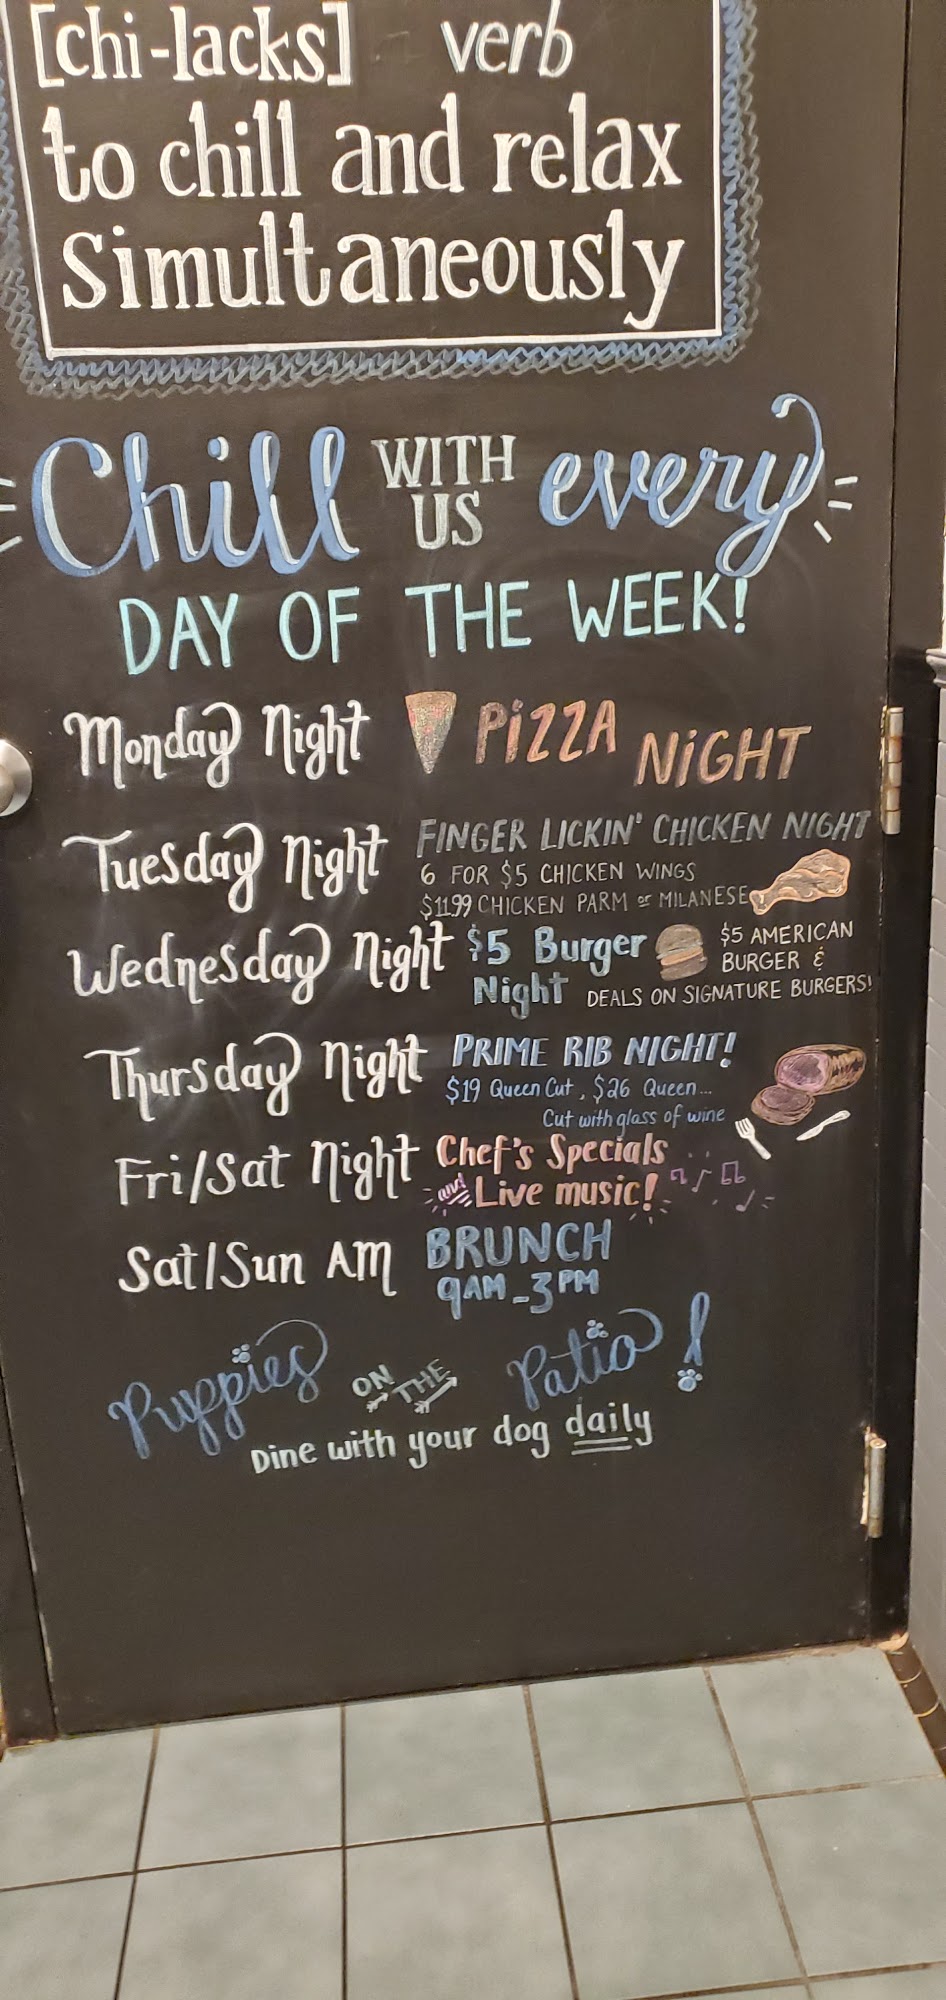 [chi-lacks] verb
to chill and relax
simultaneously
Chill WITH US every
DAY OF THE WEEK!
Monday Night PIZZA NIGHT
Tuesday Night FINGER LICKIN' CHICKEN NIGHT
6 FOR $5 CHICKEN WINGS
$11.99 CHICKEN PARM or MILANESE
Wednesday Night $5 Burger Night
$5 AMERICAN
BURGER &
DEALS ON SIGNATURE BURGERS!
Thursday Night PRIME RIB NIGHT!
$19 Queen Cut, $26 Queen...
Cut with glass of wine
Fri/Sat Night Chef's Specials
and Live music!
Sat/Sun AM BRUNCH
9AM-3PM
Puppies ON THE Patio!
Dine with your dog daily